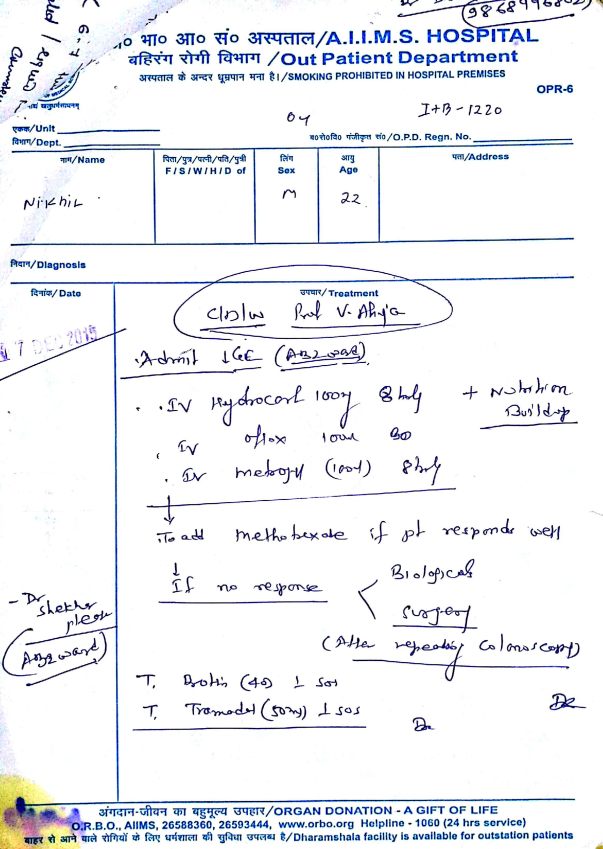 (9868996802)
अ० भा० आ० सं० अस्पताल/A.I.I.M.S. HOSPITAL
बहिरंग रोगी विभाग /Out Patient Department
अस्पताल के अन्दर धूम्रपान मना है।/SMOKING PROHIBITED IN HOSPITAL PREMISES
OPR-6
I+B-1220
एकक/Unit
विभाग/Dept.
ब०रो०वि० पंजीकृत सं०/O.P.D. Regn. No.
नाम/Name
पिता/पुत्र/पत्नी/पति/पुत्री
F/S/W/H/D of
लिंग
Sex
आयु
Age
पता/Address
Nikhil
M
22
निदान/Diagnosis
दिनांक/Date
उपचार/Treatment
C/D/W Prof V. Ahuja
17 DEC 2015
Admit (AB2 ward)
IV Hydrocort 100mg 8 hrly + Nutrition Buildup
IV oflox BD
IV metrogyl 8 hrly
To add methotrexate if pt responds well
If no response
Biologicals
Surgery
(After repeating colonoscopy)
- Dr Shekhar please
(AB2 ward)
T. (40) 1 sos
T. Tramadol (50mg) 1 sos
अंगदान-जीवन का बहुमूल्य उपहार/ORGAN DONATION - A GIFT OF LIFE
O.R.B.O., AIIMS, 26588360, 26593444, www.orbo.org Helpline - 1060 (24 hrs service)
बाहर से आने वाले रोगियों के लिए धर्मशाला की सुविधा उपलब्ध है/Dharamshala facility is available for outstation patients